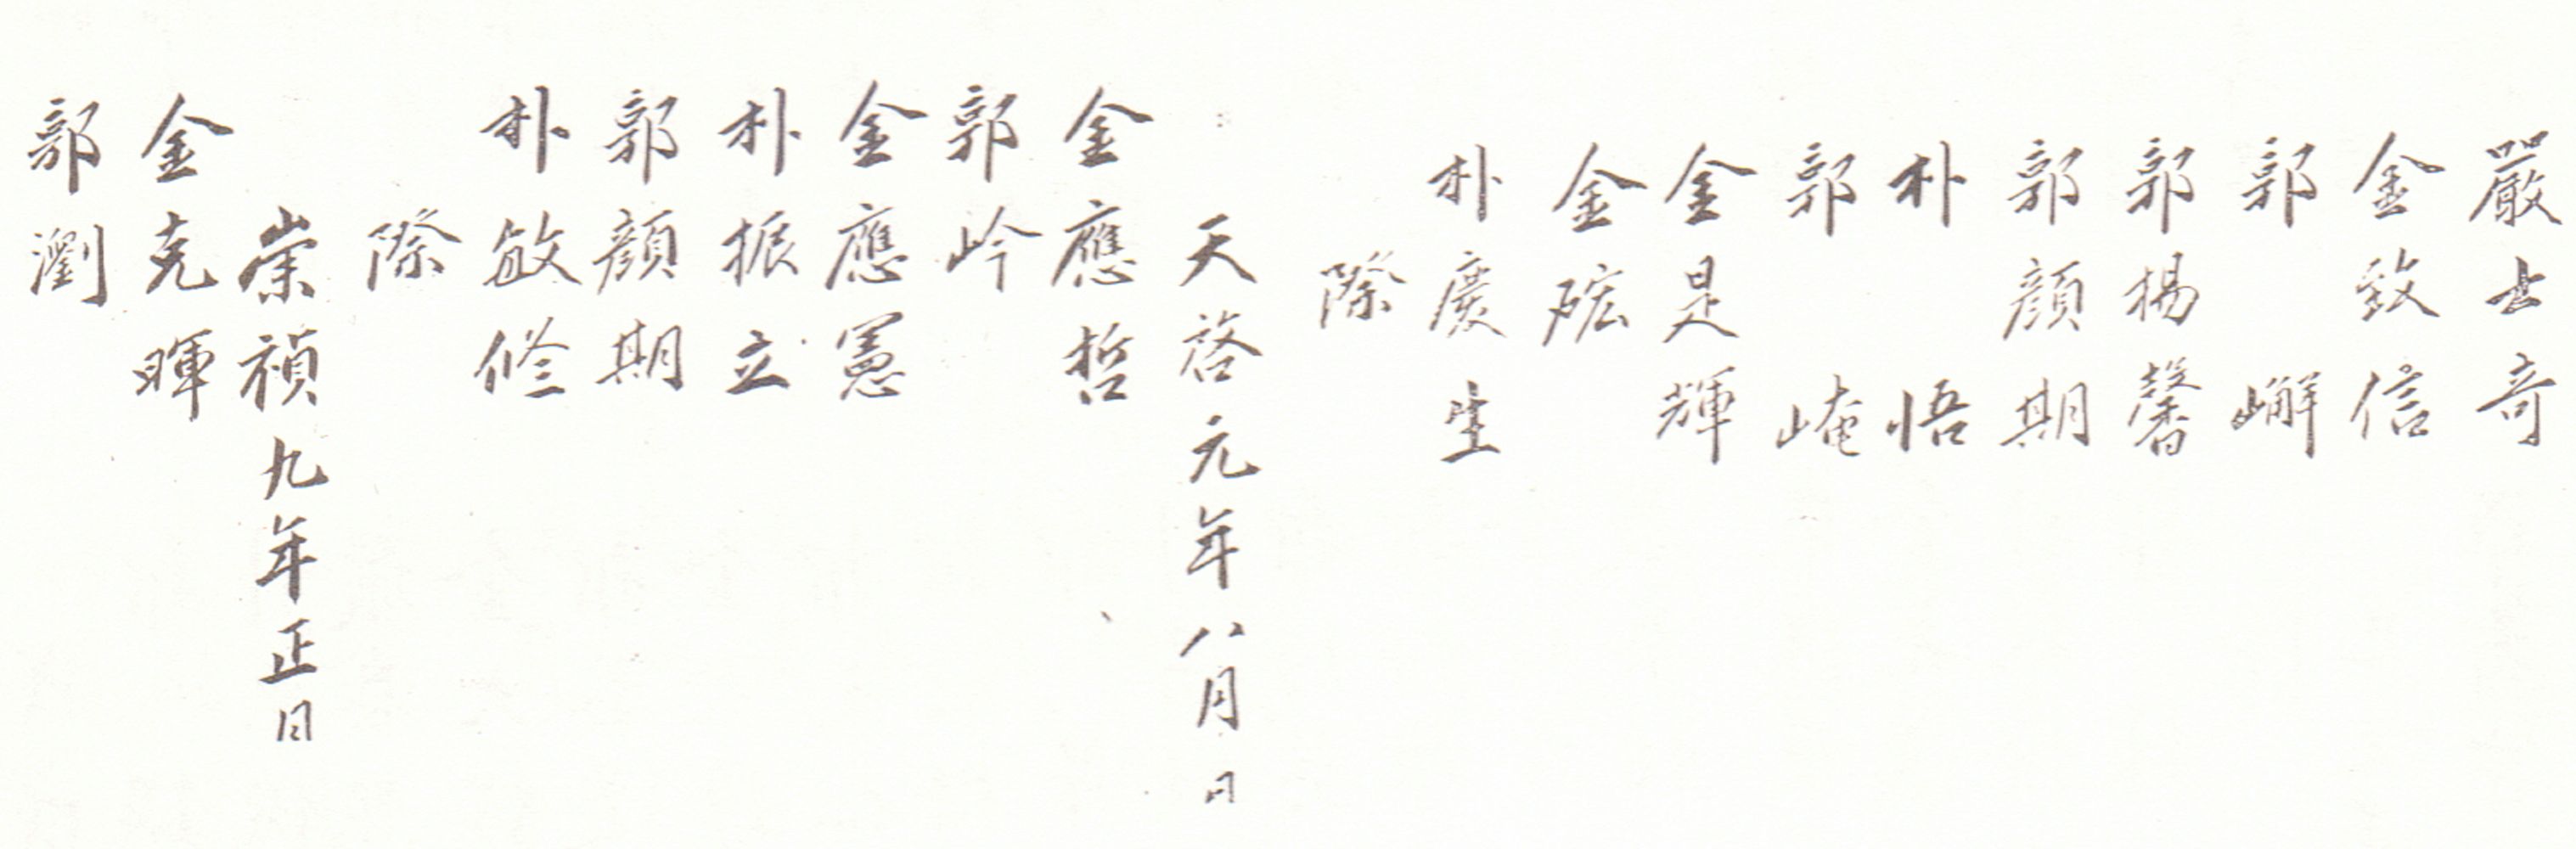 嚴士奇
金致信
郭嶰
郭楊馨
郭顔期
朴悟
郭崦
金是輝
金硡
朴慶生
際
天啓元年八月日
金應哲
郭岭
金應憲
朴振立
郭顔期
朴敏修
際
崇禎九年正月
金克暉
郭瀏